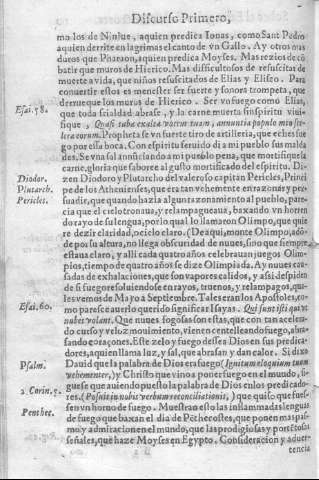 Discurso Primero,
mo los de Niniue, aquien predica Ionas, como Sant Pedro
aquien derrite en lagrimas el canto de vn Gallo. Ay otros mas
duros que Pharaon, aquien predica Moyses. Mas rezios de cõ
batir que muros de Hierico. Mas difficultosos de resuscitar de
muerte a vida, que niños resuscitados de Elias y Eliseo. Para
conuertir estos es menester ser fuerte y sonora trompeta, que
derrueque los muros de Hierico. Ser vn fuego como Elias,
Esai. 58.
que toda frialdad abrase, y la carne muerta sin spiritu viui-
fique, Quasi tuba exalta vocem tuam, annuntia populo meo sce-
lera eorum. Propheta se vn fuerte tiro de artilleria, que eches fue
go por essa boca. Con espiritu feruido di a mi pueblo sus malda
des. Se vna sal annunciando a mi pueblo pena, que mortifique la
carne, gloria que saboree al gusto mortificado del espiritu. Di-
Diodor.
Plutarch.
Pericles.
zen Diodoro y Plutarcho del valeroso capitan Pericles, Princi
pe de los Athenienses, que era tan vehemente en razonar y per-
suadir, que quando hazia algun razonamiento al pueblo, pare-
cia que el cielo tronaua, y relampagueaua, baxando vn horren
do rayo de su lengua, por lo qual lo llamaron Olimpo, que quie
re dezir claridad, o cielo claro. (De aqui, monte Olimpo, adõ
de por su altura, no llega obscuridad de nuues, sino que siempre
esta una claro, y alli cada quatro años celebrauan juegos Olim-
pios, tiempo de quatro años se dize Olimpiada. Ay nuues cau-
sadas de exhalaciones, que son vapores calidos, y assi despiden
de si fuego resoluiendose en rayos, truenos, y relampagos, qua
les vemos de Mayo a Septiembre. Tales eran los Apostoles, co-
Esai. 60.
mo parece auerlo querido significar Isayas. Qui sunt isti qui vt
nubes volant. Que nuues fogosas son estas, que con tan acelera-
do curso y veloz mouimiento, vienen centelleando fuego, abra-
sando coraçones. Este zelo y fuego dessea Dios en sus predica-
dores, aquien llama luz, y sal, que abrasan y dan calor. Si dixo
Psalm.
Dauid que la palabra de Dios era fuego (Ignitum eloquium tuum
vehementer,) y Christo que vino a poner fuego en el mundo, si-
2. Corin. 5.
guese que auiendo puesto la palabra de Dios en los predicado-
res. (Posuit in nobis verbum reconciliationis,) que quiso que fues-
sen vn horno de fuego. Muestran esto las inflammadas lenguas
Penthec.
de fuego que baxan el dia de Pẽthecostes, que ponen mas pas-
mo y admiracion en el mundo, que las prodigiosas y portẽtosas
señales, que haze Moyses en Egypto. Consideracion y aduer-
tencia